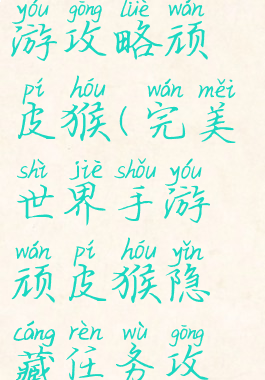 yóu gōng lüè wán
游攻略顽
pí hóu wán měi
皮猴(完美
shì jiè shǒu yóu
世界手游
wán pí hóu yǐn
顽皮猴隐
cáng rèn wù gōng
藏任务攻